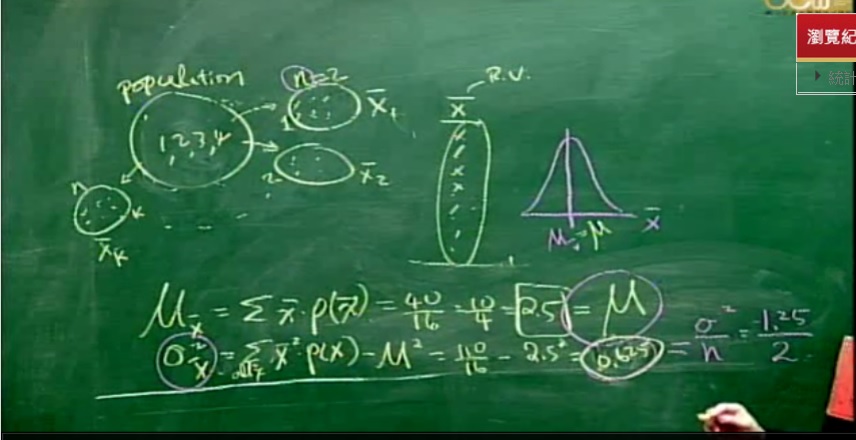 瀏覽紀
統計
population
n=2
R.V.
1,2,3,4
1
x̄₁
x̄
2
x̄₂
n
K
x̄ₖ
μ = μ
x̄
μ_x̄ = Σ x̄·p(x̄) = 40/16 = 10/4 = 2.5 = μ
σ²_x̄ = Σ x̄² p(x̄) - μ² = 110/16 - 2.5² = 0.625 = σ²/n = 1.25/2